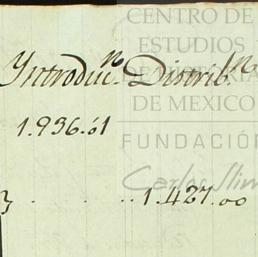 CENTRO DE
ESTUDIOS
DE HISTORIA
DE MEXICO
FUNDACIÓN
Carlos Slim
Introducn. Distribn.
1.936.61
3 . . . . 1.427.00